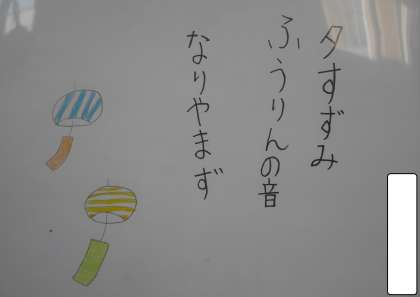 夕すずみ
ふうりんの音
なりやまず